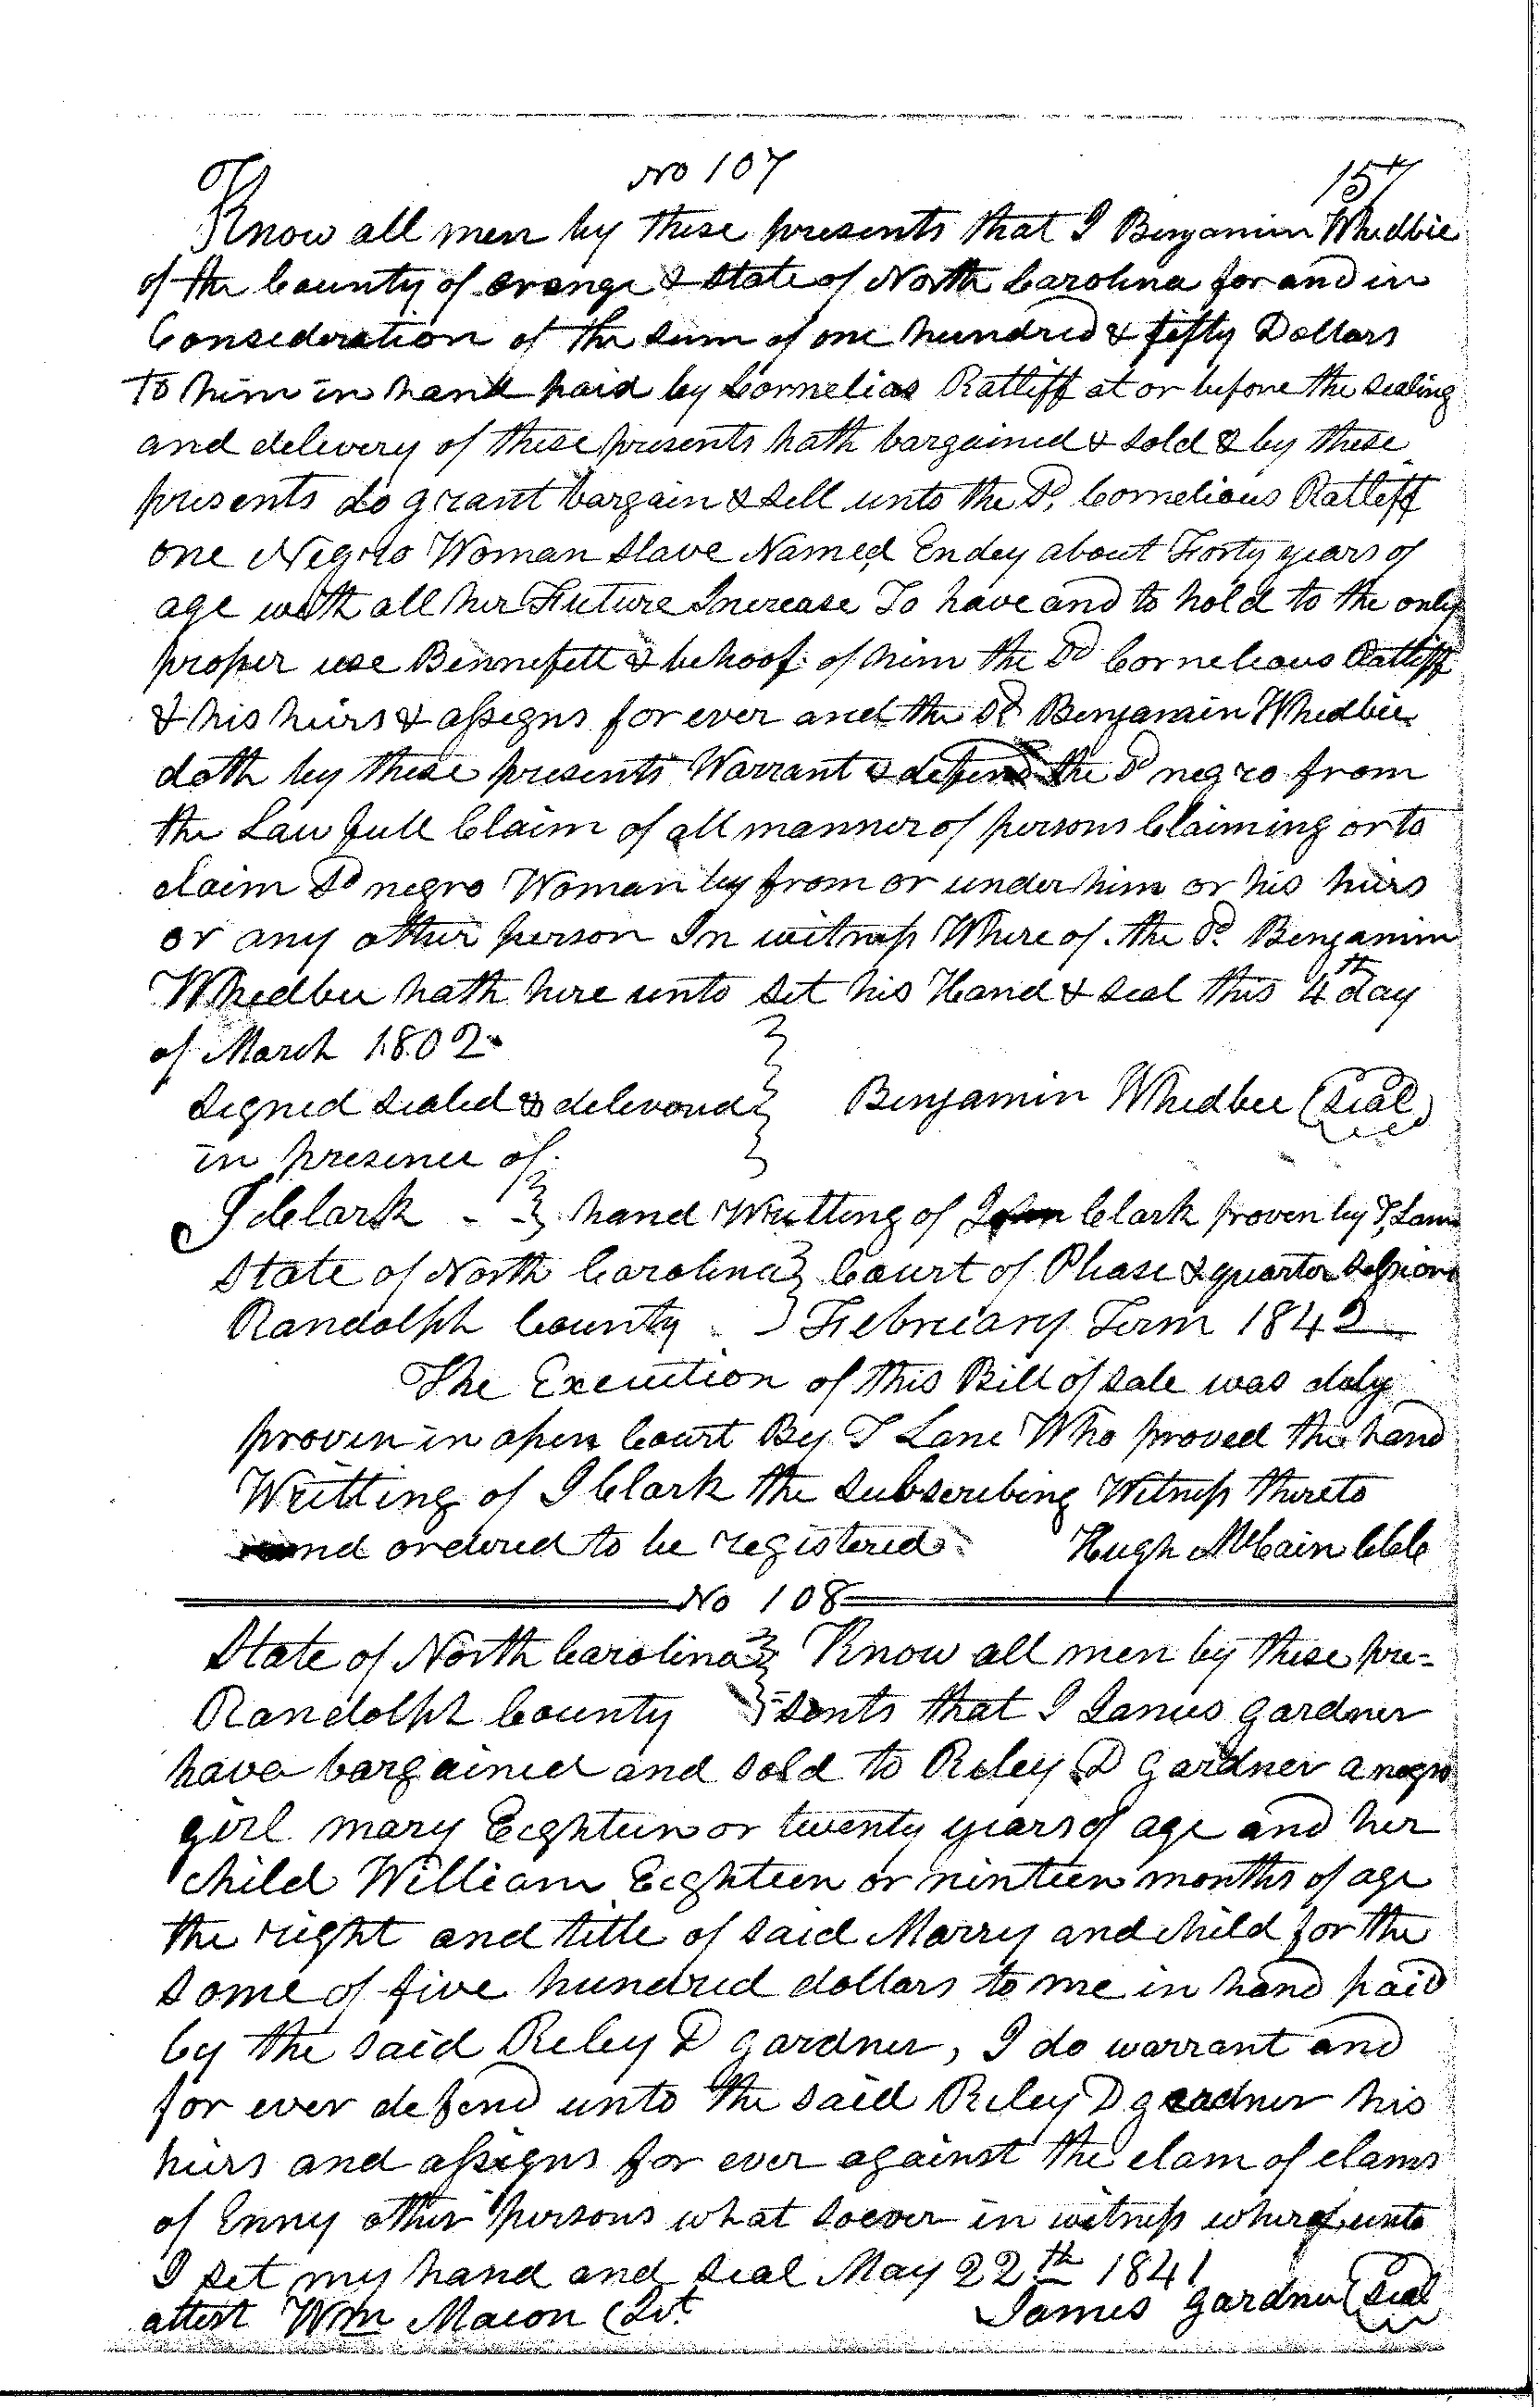 No 107
157
Know all men by these presents that I Benjamin Whedbie
of the County of Orange & State of North Carolina for and in
Consideration of the sum of one hundred & fifty Dollars
To him in hand paid by Cornelias Ratliff at or before the sealing
and delivery of these presents hath bargained & sold & by these
presents do grant bargain & sell unto the Sd. Cornelious Ratliff
one Negro Woman slave Named Endey about Forty years of
age with all her Future Increase To have and to hold to the only
proper use Bennefett & behoof of him the Sd Cornelious Ratliff
& his heirs & assigns for ever and the Sd Benjamin Whedbie
doth by these presents Warrant & defend the Sd negro from
the Law full Claim of all manner of persons Claiming or to
claim Sd negro Woman by from or under him or his heirs
or any other person In witness Where of the Sd. Benjamin
Whedbee hath here unto set his Hand & seal this 4th day
of March 1802
Signed sealed & deleverud Benjamin Whedbee (seal)
in presence of
J Clark - - hand Writting of John Clark proven by T. Lane
State of North Carolina Court of Please & quarter Sessions
Randolph County February Term 1842
The Execution of this Bill of sale was duly
proven in open Court By T Lane Who proved the hand
Writting of J Clark the subscribing Witness thereto
and ordered to be registered. Hugh McCain CCC
No 108
State of North Carolina Know all men by these pre-
Randolph County -sents that I James gardner
have bargained and sold to Riley D gardner a negro
girl mary Eighteen or twenty years of age and her
child William Eighteen or ninteen months of age
the right and title of said Marry and child for the
some of five hundred dollars to me in hand paid
by the said Riley D gardner, I do warrant and
for ever defend unto the said Riley D gardner his
heirs and assigns for ever against the clam of clams
of Enny other persons what soever in witness whereof unto
I set my hand and seal May 22th 1841
attest Wm Macon James gardner (seal)